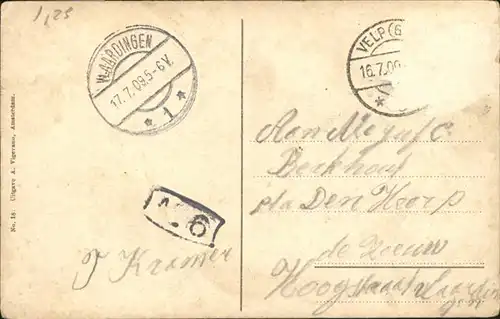 1,25
VLAARDINGEN
17.7.09.5-6V.
* 1 *
VELP (G
16.7.09
No. 18. Uitgave A. Vigevano, Amsterdam.
Aan Mejuf C.
Beekhout
p/a Den Hoorp
de Zeeuw
Hoogstraat
J Kramer